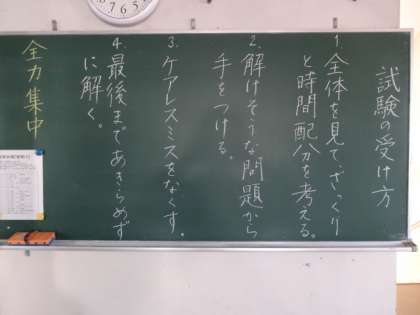 試験の受け方
1.全体を見て、ざっくり
と時間配分を考える。
2.解けそうな問題から
手をつける。
3.ケアレスミスをなくす。
4.最後まであきらめず
に解く。
全力集中